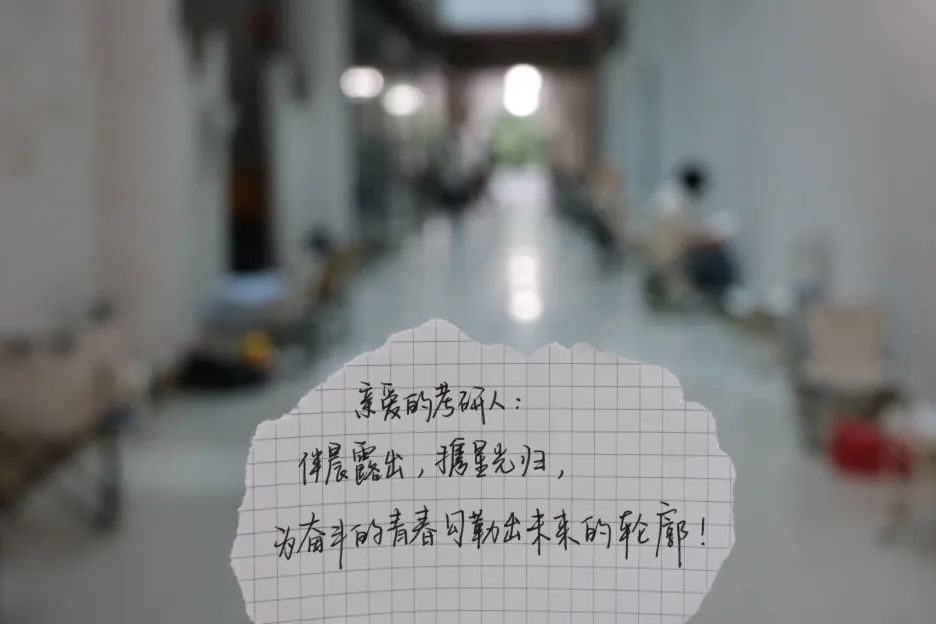 亲爱的考研人：
伴晨露出，携星光归，
为奋斗的青春勾勒出未来的轮廓！